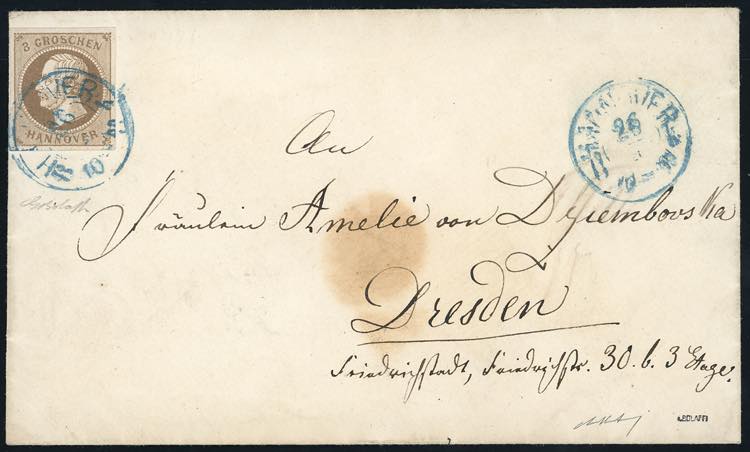 3 GROSCHEN
HANNOVER
HANNOVER
26
An
Fräulein Amelie von Dziembovska
Dresden
Friedrichstadt, Friedrichstr. 30. b. 3 Etage.